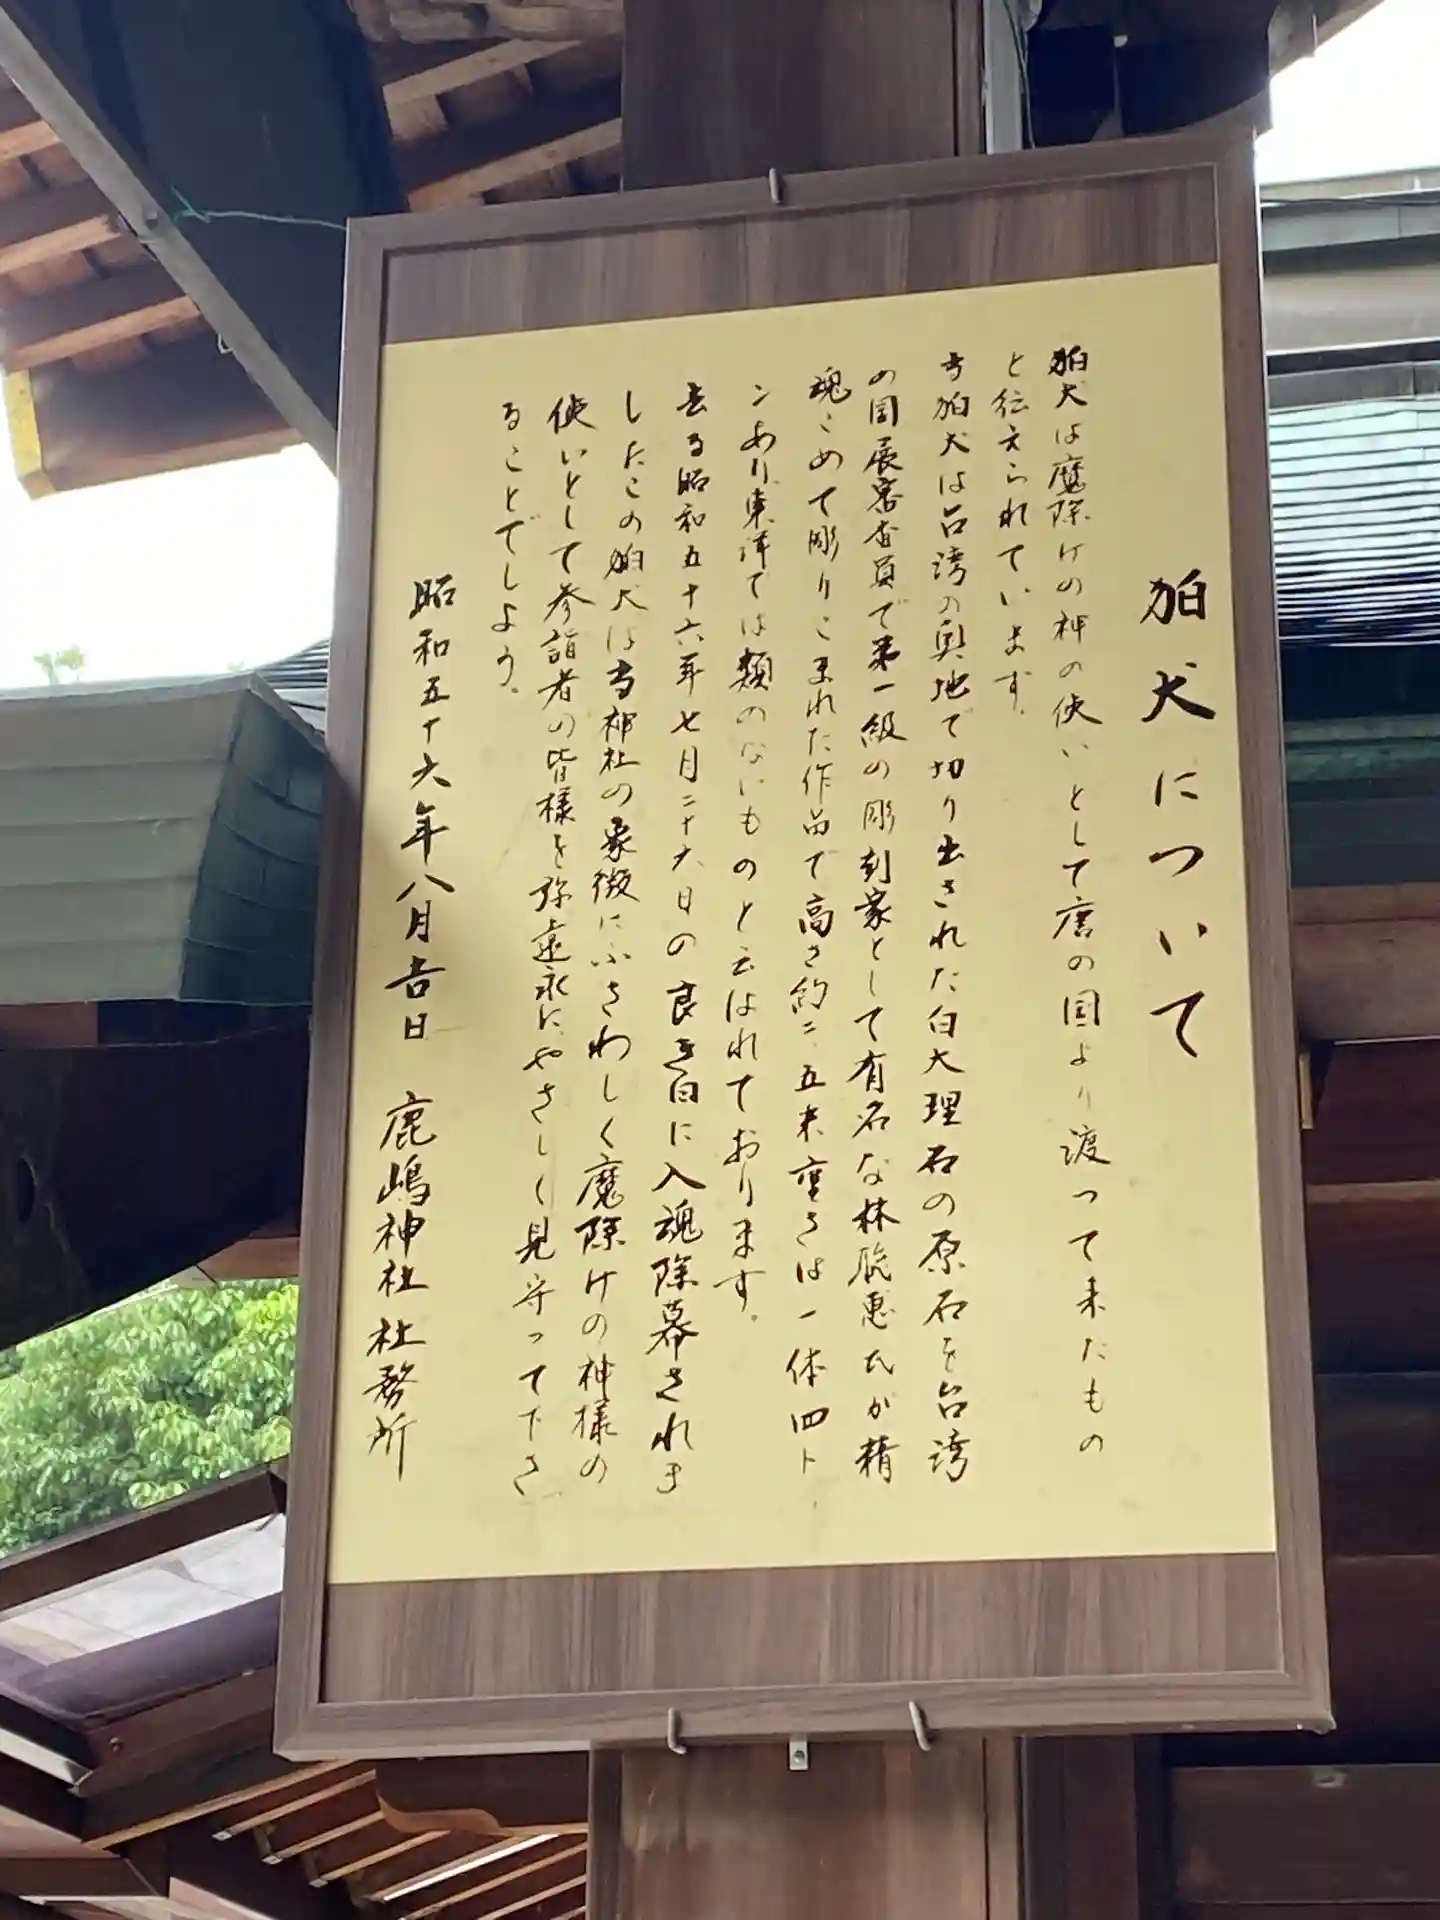 狛犬について
狛犬は魔除けの神の使いとして唐の国より渡って来たもの
と伝えられています。
当狛犬は台湾の奥地で切り出された白大理石の原石を台湾
の国展審査員で第一級の彫刻家として有名な林 惠氏が精
魂こめて彫りこまれた作品で高さ約二、五米重さは一体四ト
ンあり東洋では類のないものと云はれております。
去る昭和五十六年七月二十六日の良き日に入魂除幕されま
したこの狛犬は当神社の象徴にふさわしく魔除けの神様の
使いとして参詣者の皆様を弥遠永にやさしく見守って下さ
ることでしょう。
昭和五十六年八月吉日 鹿嶋神社社務所